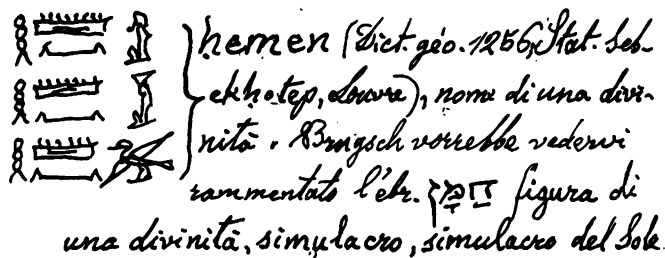 ḥemen (Dict. géo. 1256, Stat. Seb-
ekḥotep, Louvre), nome di una divi-
nità. Brugsch vorrebbe vedervi
rammentato l'ebr. חַמָּן figura di
una divinità, simulacro, simulacro del Sole.